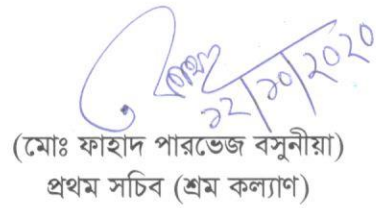 ১২/১০/২০২০
(মোঃ ফাহাদ পারভেজ বসুনীয়া)
প্রথম সচিব (শ্রম কল্যাণ)